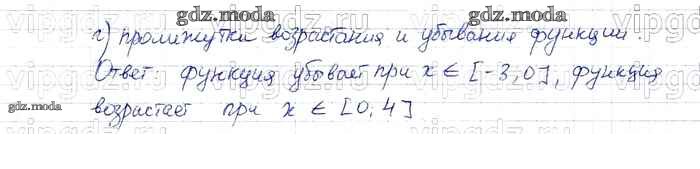 gdz.moda
г) промижутки возрастания и убывания функции.
Ответ: функция убывает при x ∈ [-3; 0], функция
возрастает при x ∈ [0; 4]
gdz.moda
gdz.moda
gdz.moda
gdz.moda